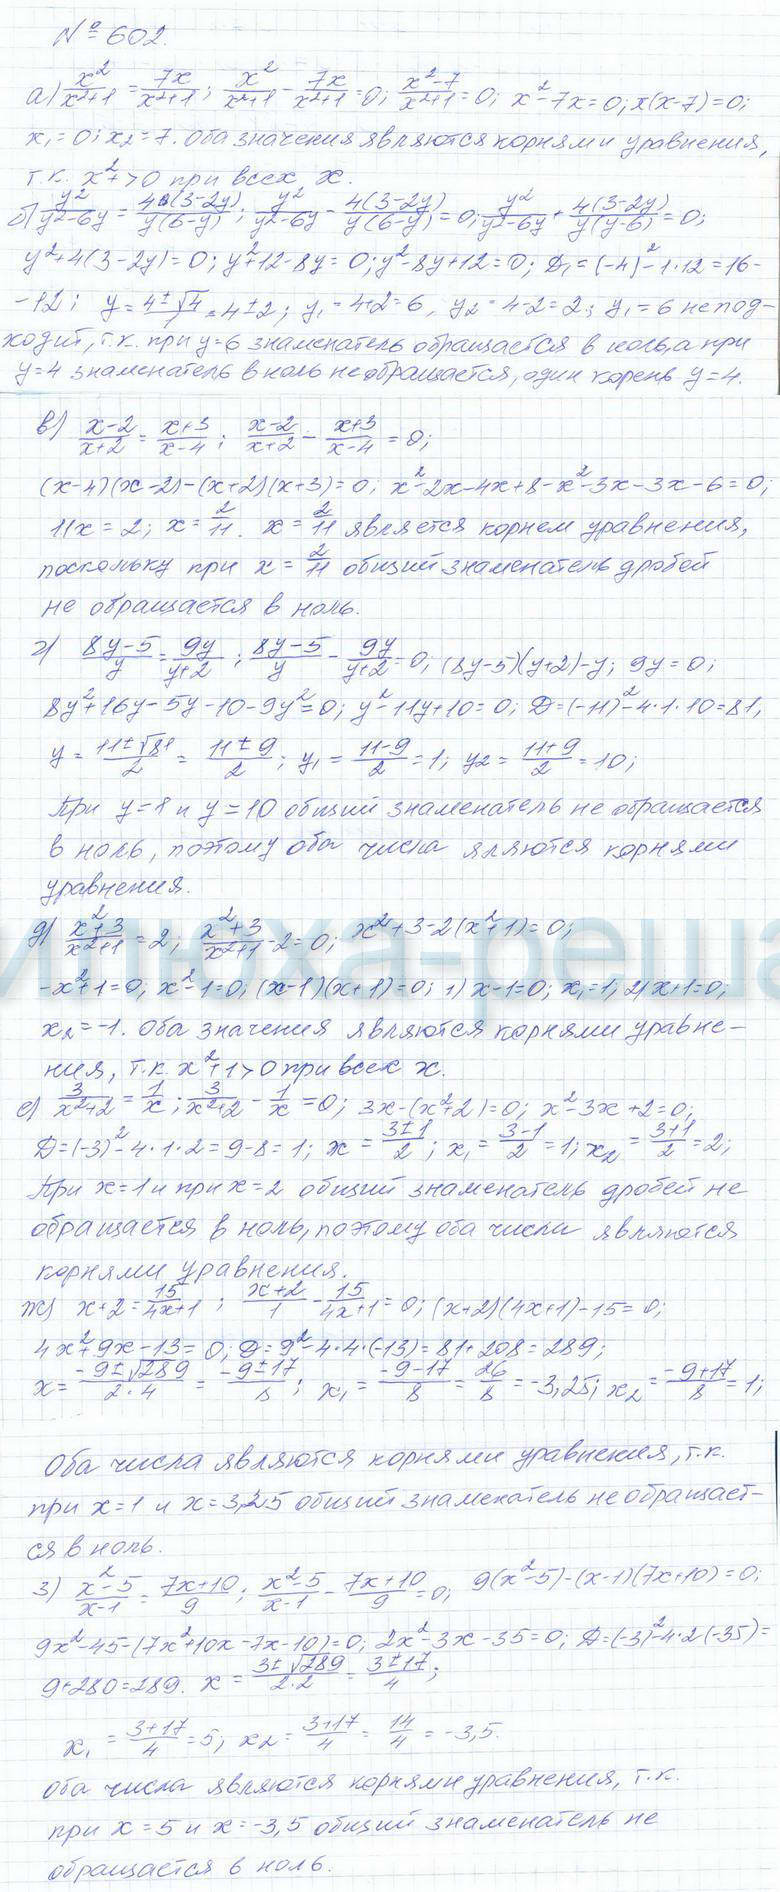 №602.
а) x²/(x²+1) = 7x/(x²+1); x²/(x²+1) - 7x/(x²+1) = 0; (x²-7)/(x²+1) = 0; x²-7x=0; x(x-7)=0;
x₁=0; x₂=7. Оба значения являются корнями уравнения,
т.к. x²+>0 при всех x.
б) y²/(y²-6y) = 4(3-2y)/(y(6-y)); y²/(y²-6y) - 4(3-2y)/(y(6-y)) = 0; y²/(y²-6y) + 4(3-2y)/(y(y-6)) = 0;
y²+4(3-2y)=0; y²+12-8y=0; y²-8y+12=0; D₁=(-4)²-1·12=16-
-12; y=(4±√4)/1=4±2; y₁=4+2=6, y₂=4-2=2; y₁=6 не под-
ходит, т.к. при y=6 знаменатель обращается в ноль, а при
y=4 знаменатель в ноль не обращается, один корень y=4.
в) (x-2)/(x+2) = (x+3)/(x-4); (x-2)/(x+2) - (x+3)/(x-4) = 0;
(x-4)(x-2)-(x+2)(x+3)=0; x²-2x-4x+8-x²-3x-3x-6=0;
11x=2; x=2/11. x=2/11 является корнем уравнения,
поскольку при x=2/11 общий знаменатель дробей
не обращается в ноль.
г) (8y-5)/y = 9y/(y+2); (8y-5)/y - 9y/(y+2) = 0; (8y-5)(y+2)-y; 9y=0;
8y²+16y-5y-10-9y²=0; y²-11y+10=0; D=(-11)²-4·1·10=81,
y=(11±√81)/2=(11±9)/2; y₁=(11-9)/2=1; y₂=(11+9)/2=10;
При y=1 и y=10 общий знаменатель не обращается
в ноль, поэтому оба числа являются корнями
уравнения.
д) (x²+3)/(x²+1) = 2; (x²+3)/(x²+1) - 2 = 0; x²+3-2(x²+1)=0;
-x²+1=0; x²-1=0; (x-1)(x+1)=0; 1) x-1=0; x₁=1, 2) x+1=0;
x₂=-1. Оба значения являются корнями уравне-
ния, т.к. x²+1>0 при всех x.
е) 3/(x²+2) = 1/x; 3/(x²+2) - 1/x = 0; 3x-(x²+2)=0; x²-3x+2=0;
D=(-3)²-4·1·2=9-8=1; x=(3±1)/2; x₁=(3-1)/2=1; x₂=(3+1)/2=2;
При x=1 и при x=2 общий знаменатель дробей не
обращается в ноль, поэтому оба числа являются
корнями уравнения.
ж) x+2=15/(4x+1); (x+2)/1 - 15/(4x+1) = 0; (x+2)(4x+1)-15=0;
4x²+9x-13=0; D=9²-4·4·(-13)=81+208=289;
x=(-9±√289)/(2·4)=(-9±17)/8; x₁=(-9-17)/8=26/8=-3,25; x₂=(-9+17)/8=1;
Оба числа являются корнями уравнения, т.к.
при x=1 и x=3,25 общий знаменатель не обращает-
ся в ноль.
з) (x²-5)/(x-1) = (7x+10)/9; (x²-5)/(x-1) - (7x+10)/9 = 0; 9(x²-5)-(x-1)(7x+10)=0;
9x²-45-(7x²+10x-7x-10)=0; 2x²-3x-35=0; D=(-3)²-4·2(-35)=
9+280=289. x=(3±√289)/(2·2)=(3±17)/4;
x₁=(3+17)/4=5; x₂=(3+17)/4=14/4=-3,5.
оба числа являются корнями уравнения, т.к.
при x=5 и x=-3,5 общий знаменатель не
обращается в ноль.
илюха-реша